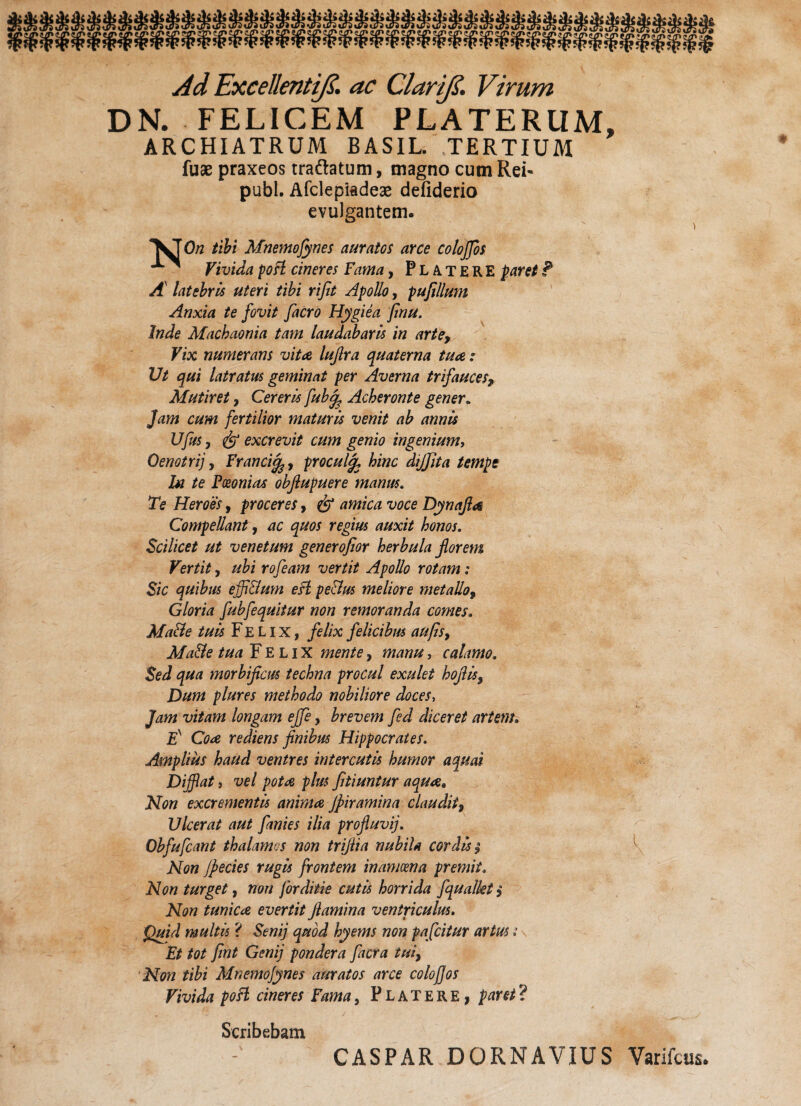 Ad Excellentiſs. ac Clariſs. Virum
DN. FELICEM PLATERUM,
ARCHIATRUM BASIL. TERTIUM
ſuæ praxeos tractatum, magno cum Rei-
publ. Aſclepiadeæ deſiderio
evulgantem.
NOn tibi Mnemoſynes auratos arce coloſſos
Vivida poſt cineres Fama, PLATERE paret?
A' latebris uteri tibi riſit Apollo, puſillum
Anxia te fovit ſacro Hygiéa ſinu.
Inde Machaonia tam laudabaris in arte,
Vix numerans vitæ luſtra quaterna tuæ:
Ut qui latratus geminat per Averna trifauces,
Mutiret, Cereris ſubq́; Acheronte gener.
Jam cum fertilior maturis venit ab annis
Uſus, & excrevit cum genio ingenium,
Oenotrij, Franciq́;, proculq́; hinc diſſita tempe
In te Pæonias obſtupuere manus.
Te Heroës, proceres, & amica voce Dynaſtæ
Compellant, ac quos regius auxit honos.
Scilicet ut venetum generoſior herbula florem
Vertit, ubi roſeam vertit Apollo rotam:
Sic quibus effictum eſt pectus meliore metallo,
Gloria ſubſequitur non remoranda comes.
Macte tuis FELIX, felix felicibus auſis,
Macte tua FELIX mente, manu, calamo.
Sed qua morbificus techna procul exulet hoſtis,
Dum plures methodo nobiliore doces,
Jam vitam longam eſſe, brevem ſed diceret artem.
E' Coæ rediens finibus Hippocrates.
Ampliùs haud ventres intercutis humor aquai
Difflat, vel potæ plus ſitiuntur aquæ.
Non excrementis animæ ſpiramina claudit,
Ulcerat aut ſanies ilia profluvij.
Obfuſcant thalamos non triſtia nubila cordis;
Non ſpecies rugis frontem inamœna premit.
Non turget, non ſorditie cutis horrida ſquallet;
Non tunicæ evertit ſtamina ventriculus.
Quid multis? Senij quòd hyems non paſcitur artus:
Et tot ſint Genij pondera ſacra tui,
Non tibi Mnemoſynes auratos arce coloſſos
Vivida poſt cineres Fama, PLATERE, paret?
Scribebam
CASPAR DORNAVIUS Variſcus.